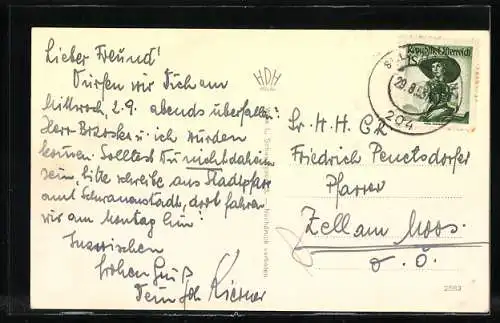 Lieber Freund!
Dürfen wir Dich am
Mittwoch, 2.9. abends überfallen?
Herr Brzoska u. ich würden
kommen. Solltest Du nicht daheim
sein, bitte schreibe ans Stadtpfarr
amt Schwanenstadt, dort fahren
wir am Montag hin!
Inzwischen
frohen Gruß
Dein Joh
HDH
Nachdruck verboten
Republik Österreich
1S
29.8.53
204
Sr. H. H. CR
Friedrich Penetsdorfer
Pfarrer
Zell am Moos.
O. Ö.
2553